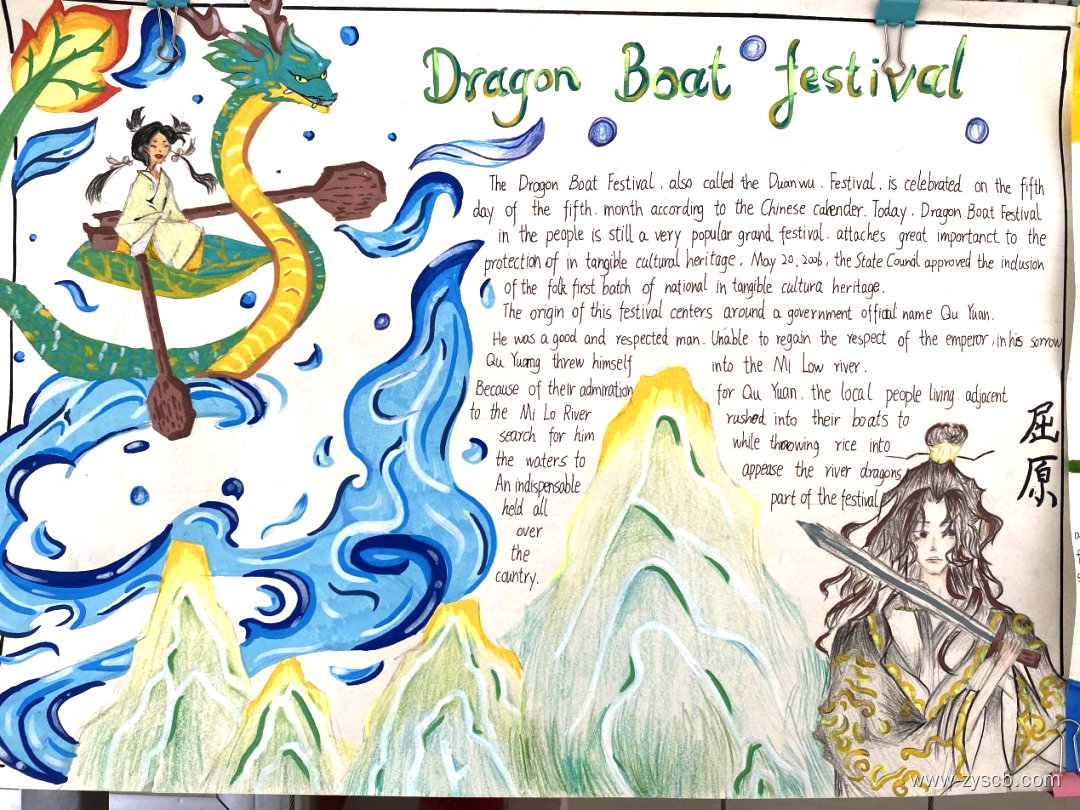 Dragon Boat festival
The Dragon Boat Festival. also called the Duanwu. Festival, is celebrated on the fifth
day of the fifth. month according to the Chinese calender. Today, Dragon Boat Festival
in the people is still a very popular grand festival. attaches great importanct to the
protection of in tangible cultural heritage, May 20, 2006, the State Council approved the inclusion
of the folk first batch of national in tangible cultura heritage.
The origin of this festival centers around a government official name Qu Yuan.
He was a good and respected man. Unable to regain the respect of the emperor, in his sorrow
Qu Yuang threw himself into the Mi Low river.
Because of their admiration for Qu Yuan. the local people living adjacent
to the Mi Lo River rushed into their boats to
search for him while throwing rice into
the waters to appease the river dragons
An indispensable part of the festival
held all
over
the
country.
屈原
www.zyscb.com